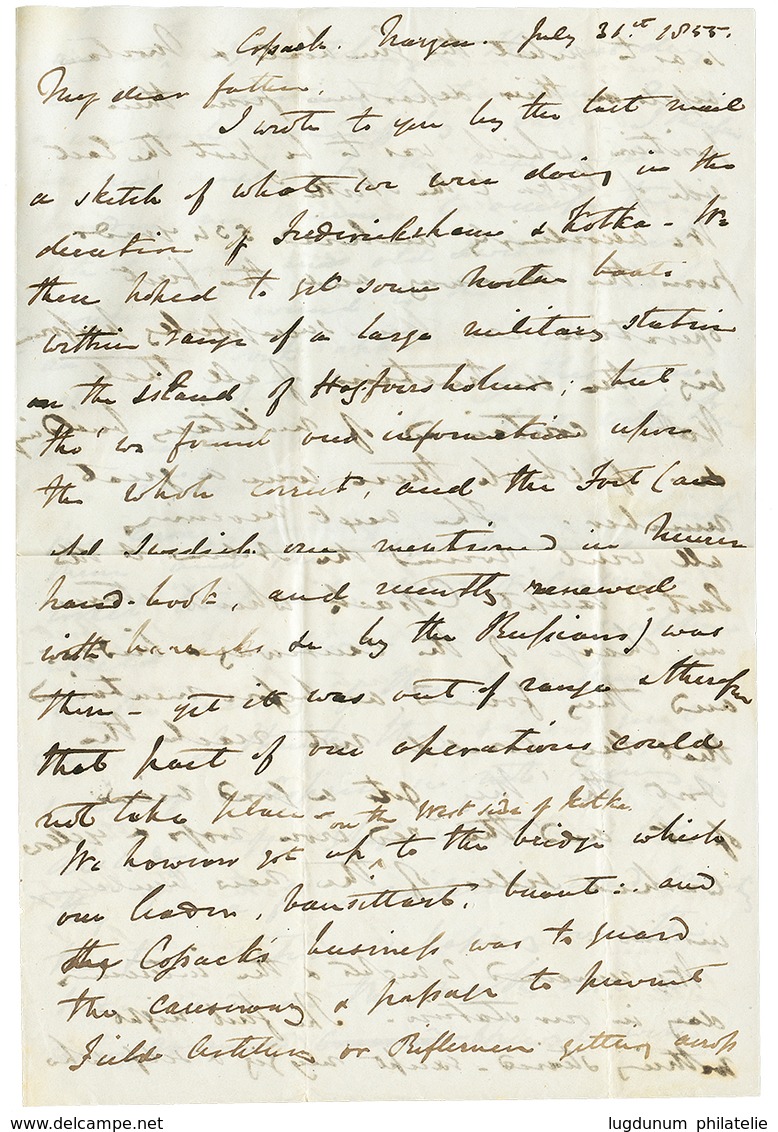 Cossack. Nargen. July 31st 1855.
My dear father,
I wrote to you by the last mail
a sketch of what we were doing in the
direction of Fredericksham & Kotka - We
then hoped to get some mortar boats
within range of a large military station
on the island of Hogforsholm; - but
tho' we found our information upon
the whole correct, and the Fort (an
old Swedish one mentioned in
hand-book, and recently renewed
with barracks &c by the Russians) was
there - yet it was out of range & therefore
that part of our operations could
not take place -
on the West side of Kotka
We however got up, to the bridge which
our leader, Vansittart, burnt: and
the Cossack's business was to guard
the causeway & passage to prevent
Field Artillery or Riflemen getting across
www.delcampe.net
lugdunum philatelie